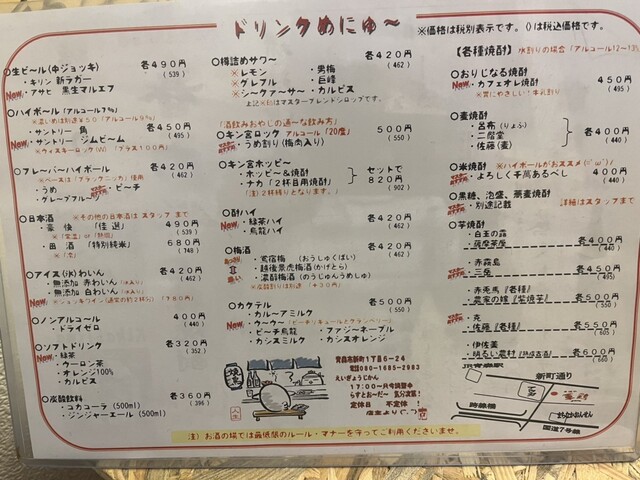 ドリンクめにゅ〜
※価格は税別表示です。()は税込価格です。
○生ビール(中ジョッキ) 各490円
(539)
・キリン 新ラガー
New ・アサヒ 黒生マルエフ
○ハイボール(アルコール7%)
・サントリー 角 各450円
(495)
New ・サントリー ジムビーム
○フレーバーハイボール 各420円
(462)
※ベースは「ブラックニッカ」使用
・うめ ・ピーチ
・グレープフルーツ
○日本酒 ※その他の日本酒はスタッフまで
・豪快 「佳選」 490円
(539)
・田酒 「特別純米」 680円
(748)
○アイス(氷)わいん 各420円
(462)
・無添加 赤わいん(氷入り)
・無添加 白わいん(氷入り)
○ノンアルコール 400円
(440)
・ドライゼロ
○ソフトドリンク 各320円
(352)
New ・緑茶
・ウーロン茶
・オレンジ100%
・カルピス
○炭酸飲料 各360円
(396)
・コカコーラ (500ml)
・ジンジャーエール (500ml)
○樽詰めサワー 各420円
(462)
※レモン ・男梅
※グレフル ・巨峰
※シークァーサー ・カルピス
上記※印はマスターブレンドシロップです。
「酒飲みおやじの通〜な飲み方」
○キン宮ロック アルコール「20度」 500円
(550)
・うめ割り(梅肉入り)
○キン宮ホッピー
・ホッピー&焼酎
・ナカ「2杯目用焼酎」
セットで
820円
(902)
○酎ハイ 各420円
(462)
New ・緑茶ハイ
・烏龍ハイ
○梅酒 各420円
(462)
・鶯宿梅 (おうしゅくばい)
・越後景虎梅酒(かげとら)
・濃醇梅酒 (のうじゅんうめしゅ)
○カクテル 各500円
(550)
・カルーアミルク
・ウーウー「ピーチリキュールとクランベリー」
・ピーチ烏龍 ・ファジーネーブル
・カシスミルク ・カシスオレンジ
【各種焼酎】
○おりじなる焼酎 450円
(495)
New ・カフェオレ焼酎
※胃にやさしい!牛乳割り
○麦焼酎
・呂布(りょふ)
・二階堂
・佐藤(麦)
各400円
(440)
○米焼酎 ※ハイボールがおススメ
・よろしく千萬あるべし 400円
(440)
○黒糖、泡盛、蕎麦焼酎
・別途記載 詳細はスタッフまで
○芋焼酎
・白玉の露
・薩摩茶屋 各400円
(440)
・赤霧島
・三岳 各450円
(495)
・赤兎馬(各種)
・農家の嫁『紫焼芋』 各500円
(550)
・克
・佐藤(各種) 各550円
(605)
・伊佐美
各600円
(660)
焼鳥
人生
青森市新町1丁目6-24
電話080-1685-2983
えいぎょうじかん
17:00〜只今調整中
らすとおーだー 気分次第!
定休日 不定休!
新町通り
国道7号線
注)お酒の場では最低限のルール・マナーを守ってご利用くださいませ。